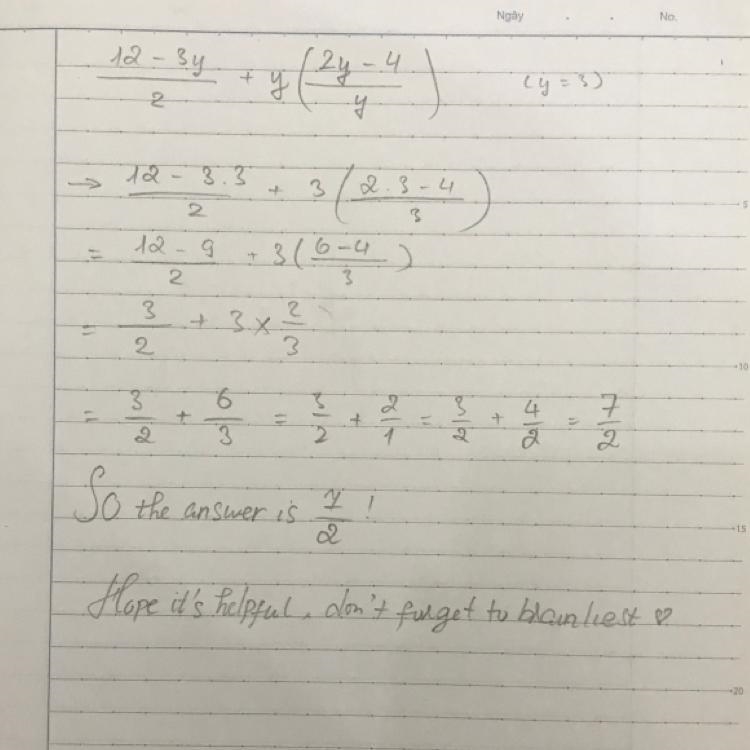 Ngày . . No.
(12 - 3y)/2 + y((2y - 4)/y) (y = 3)
→ (12 - 3.3)/2 + 3((2.3 - 4)/3)
5
= (12 - 9)/2 + 3((6 - 4)/3)
= 3/2 + 3 × 2/3
10
= 3/2 + 6/3 = 3/2 + 2/1 = 3/2 + 4/2 = 7/2
So the answer is 7/2 !
15
Hope it's helpful, don't forget to brainliest ♡
20